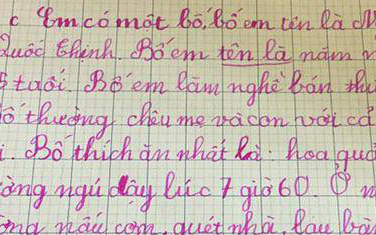 c Em có một bố, bố em tên là M
Quốc Thịnh. Bố em tên là năm n
5 tuổi. Bố em làm nghề bán thu
ố thường chêu mẹ và con với cả
i. Bố thích ăn nhất là hoa quả
ường ngủ dậy lúc 7 giờ 60. Ở n
ờng nấu cơm, quét nhà, lau bàn